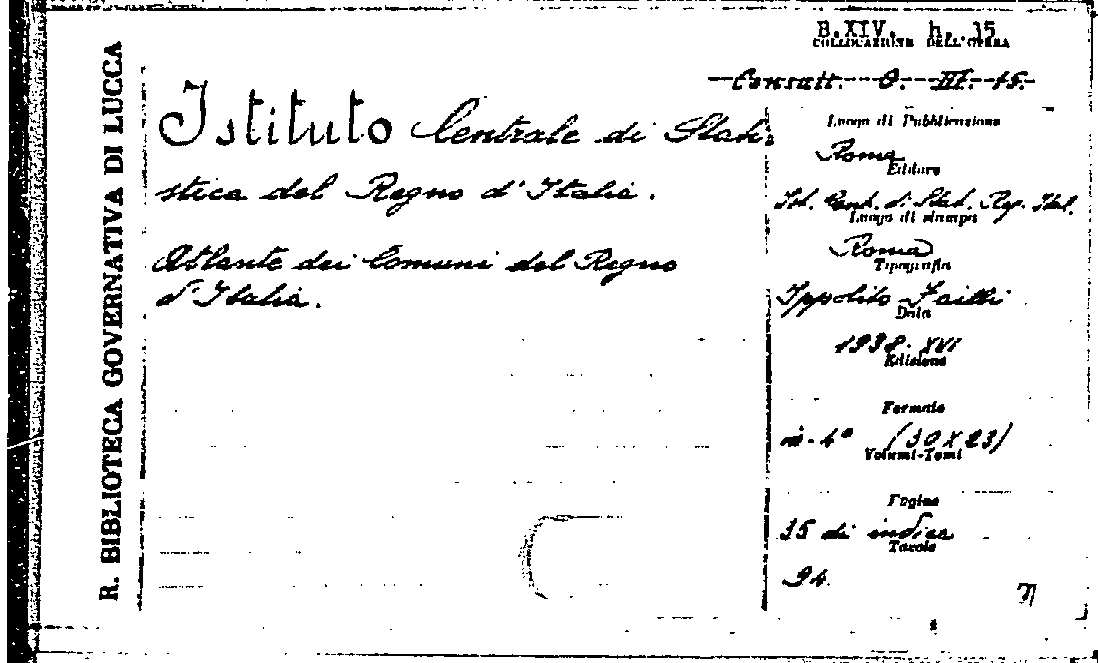 R. BIBLIOTECA GOVERNATIVA DI LUCCA
B.XIV. h. 15
COLLOCAZIONE DELL'OPERA
Consult. O. III. 15.
Istituto Centrale di Stati-
stica del Regno d'Italia.
Atlante dei Comuni del Regno
d'Italia.
Luogo di Pubblicazione
Roma
Editore
Ist. Cent. di Stat. Reg. Ital.
Luogo di stampa
Roma
Tipografia
Ippolito Failli
Data
1938-XVI
Edizione
Formato
in-4° (30X23)
Volumi-Tomi
Pagine
15 di indice
Tavole
94.